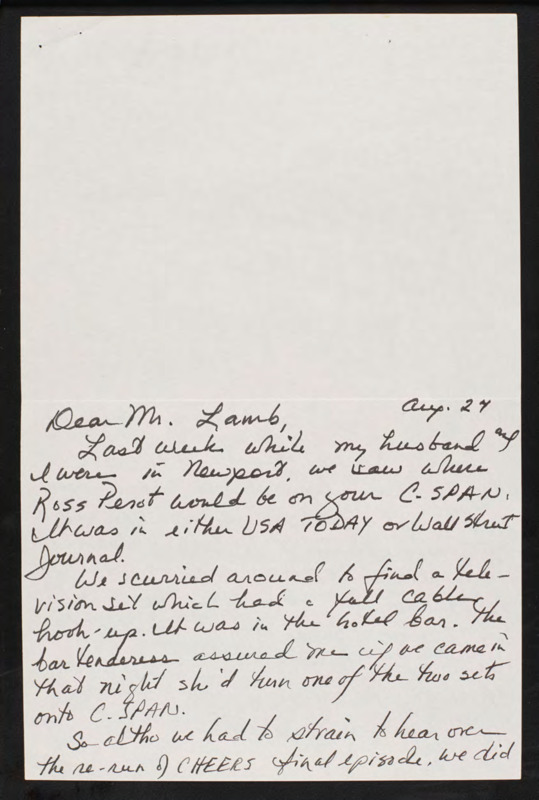 Aug. 27
Dear Mr. Lamb,
Last week while my husband and
I were in Newport, we saw where
Ross Perot would be on your C-SPAN.
It was in either USA TODAY or Wall Street
Journal.
We scurried around to find a tele-
vision set which had a full cable
hook-up. It was in the hotel bar. The
bar tenderess assured me if we came in
that night she'd turn one of the two sets
onto C-SPAN.
So altho we had to strain to hear over
the re-run of CHEERS final episode, we did